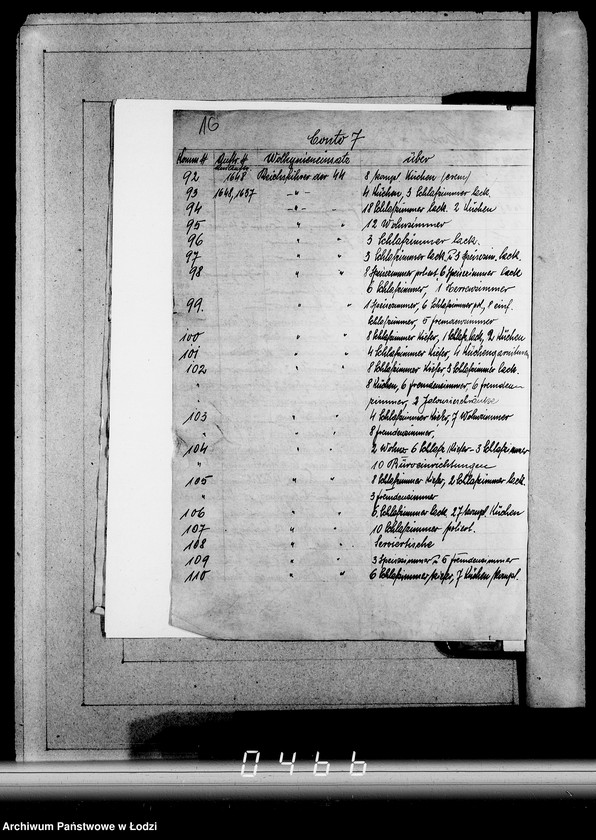 16
Conto 7
Komm # Auftr # Wolhynieneinsatz über
92 1648 Reichsführer der SS 8 kompl Küchen
93 1648, 1637 -"- 4 Küchen, 3 Schlafzimmer lack.
94 -"- 18 Schlafzimmer lack. 2 Küchen
95 " " 12 Wohnzimmer
96 " " 3 Schlafzimmer lack.
97 " " 3 Schlafzimmer lack. u 3 Speisezim. lack.
98 " " 8 Speisezimmer poliert, 6 Speisezimmer lack
6 Schlafzimmer, 1 Herrenzimmer
99. " " 1 Speisezimmer, 6 Schlafzimmer pol, 8 einf.
Schlafzimmer, 5 Fremdenzimmer
100 " " 8 Schlafzimmer Kiefer, 1 Schlafz. lack, 2 Küchen
101 " " 4 Schlafzimmer Kiefer, 4 Küchengarnituren
102 " " 8 Schlafzimmer Kiefer, 3 Schlafzimmer lack.
" 8 Küchen, 6 Fremdenzimmer, 6 Fremden-
" zimmer, 2 Jalousieschränke
103 " " 4 Schlafzimmer Kiefer, 7 Wohnzimmer
" 8 Fremdenzimmer,
104 " " 2 Wohnz. 6 Schlafz. Kiefer - 3 Schlafzimmer
" 10 Büroeinrichtungen
105 " " 8 Schlafzimmer Kiefer, 2 Schlafzimmer lack.
" 3 Fremdenzimmer
106 " " 6 Schlafzimmer lack. 27 kompl. Küchen
107 " " 10 Schlafzimmer poliert.
108 " " Serviertische
109 " " 3 Speisezimmer u 5 Fremdenzimmer
110 " " 6 Schlafzimmer, Kiefer, 7 Küchen kompl.
0466
Archiwum Państwowe w Łodzi